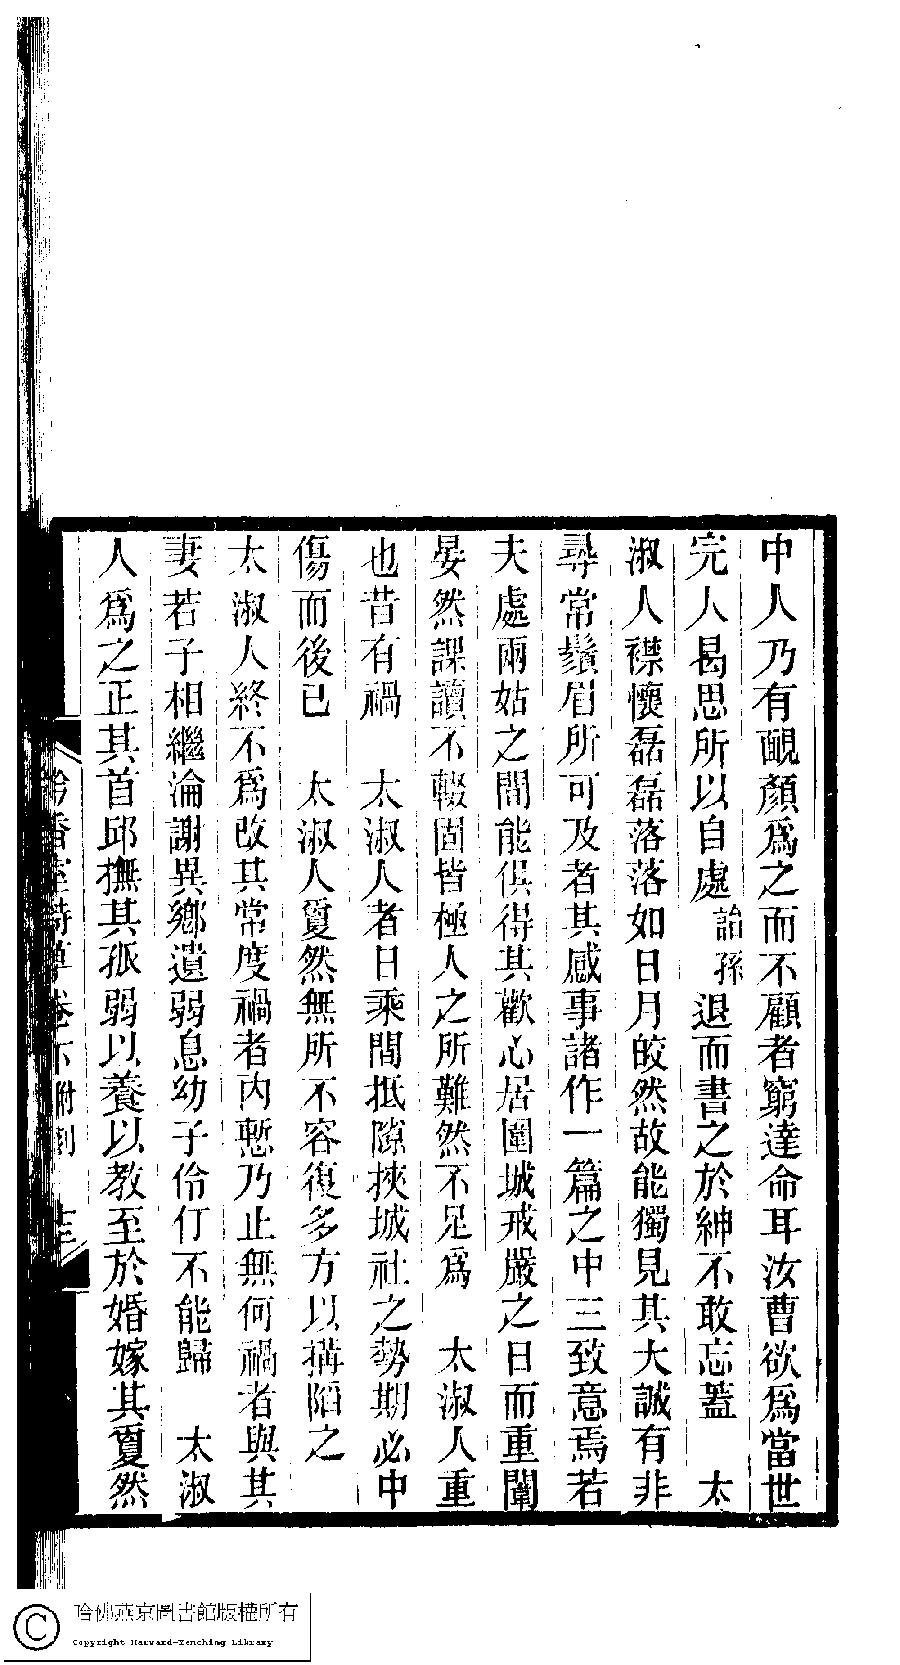 中人乃有靦顏爲之而不顧者窮達命耳汝曹欲爲當世
完人曷思所以自處詒孫退而書之於紳不敢忘蓋　太
淑人襟懷磊磊落落如日月皎然故能獨見其大誠有非
尋常鬚眉所可及者其感事諸作一篇之中三致意焉若
夫處兩姑之間能俱得其歡心居圍城戒嚴之日而重闈
晏然課讀不輟固皆極人之所難然不足爲　太淑人重
也昔有禍　太淑人者日乘間抵隙挾城社之勢期必中
傷而後已　太淑人夏然無所不容復多方以搆陷之
太淑人終不爲改其常度禍者內慙乃止無何禍者與其
妻若子相繼淪謝異鄉遺弱息幼子伶仃不能歸　太淑
人爲之正其首邱撫其孤弱以養以教至於婚嫁其夏然
吟香室詩草卷下附刻　十三
哈佛燕京圖書館版權所有
Copyright Harvard-Yenching Library